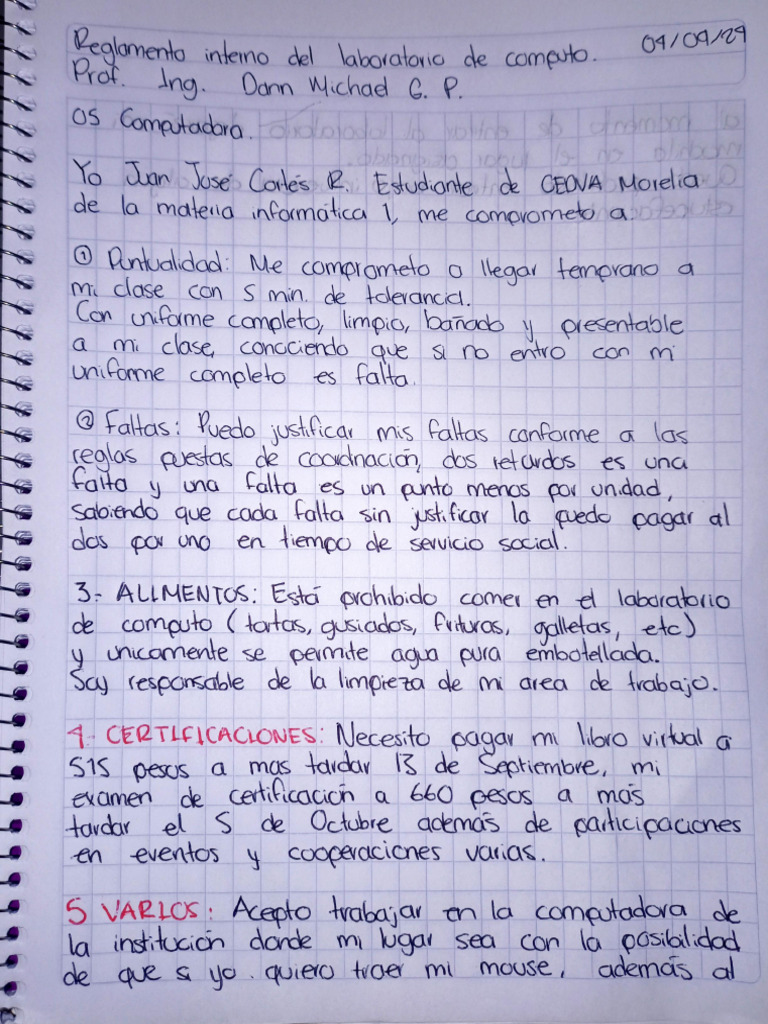 Reglamento interno del laboratorio de computo. 04/09/24
Prof. Ing. Dann Michael G. P.
05 Computadora.
Yo Juan José Cortés R. Estudiante de CEOVA Morelia
de la materia informática 1, me comprometo a:
① Puntualidad: Me comprometo a llegar temprano a
mi clase con 5 min. de tolerancia.
Con uniforme completo, limpio, bañado y presentable
a mi clase, conociendo que si no entro con mi
uniforme completo es falta.
② Faltas: Puedo justificar mis faltas conforme a las
reglas puestas de coordnación, dos retardos es una
falta y una falta es un punto menos por unidad,
sabiendo que cada falta sin justificar la puedo pagar al
dos por uno en tiempo de servicio social.
3.- ALIMENTOS: Está prohibido comer en el laboratorio
de computo (tortas, gusiados, frituras, galletas, etc)
y unicamente se permite agua pura embotellada.
Soy responsable de la limpieza de mi area de trabajo.
4.- CERTIFICACIONES: Necesito pagar mi libro virtual a
515 pesos a mas tardar 13 de Septiembre, mi
examen de certificación a 660 pesos a más
tardar el 5 de Octubre además de participaciones
en eventos y cooperaciones varias.
5 VARIOS: Acepto trabajar en la computadora de
la institución donde mi lugar sea con la posibilidad
de que si yo quiero traer mi mouse, además al